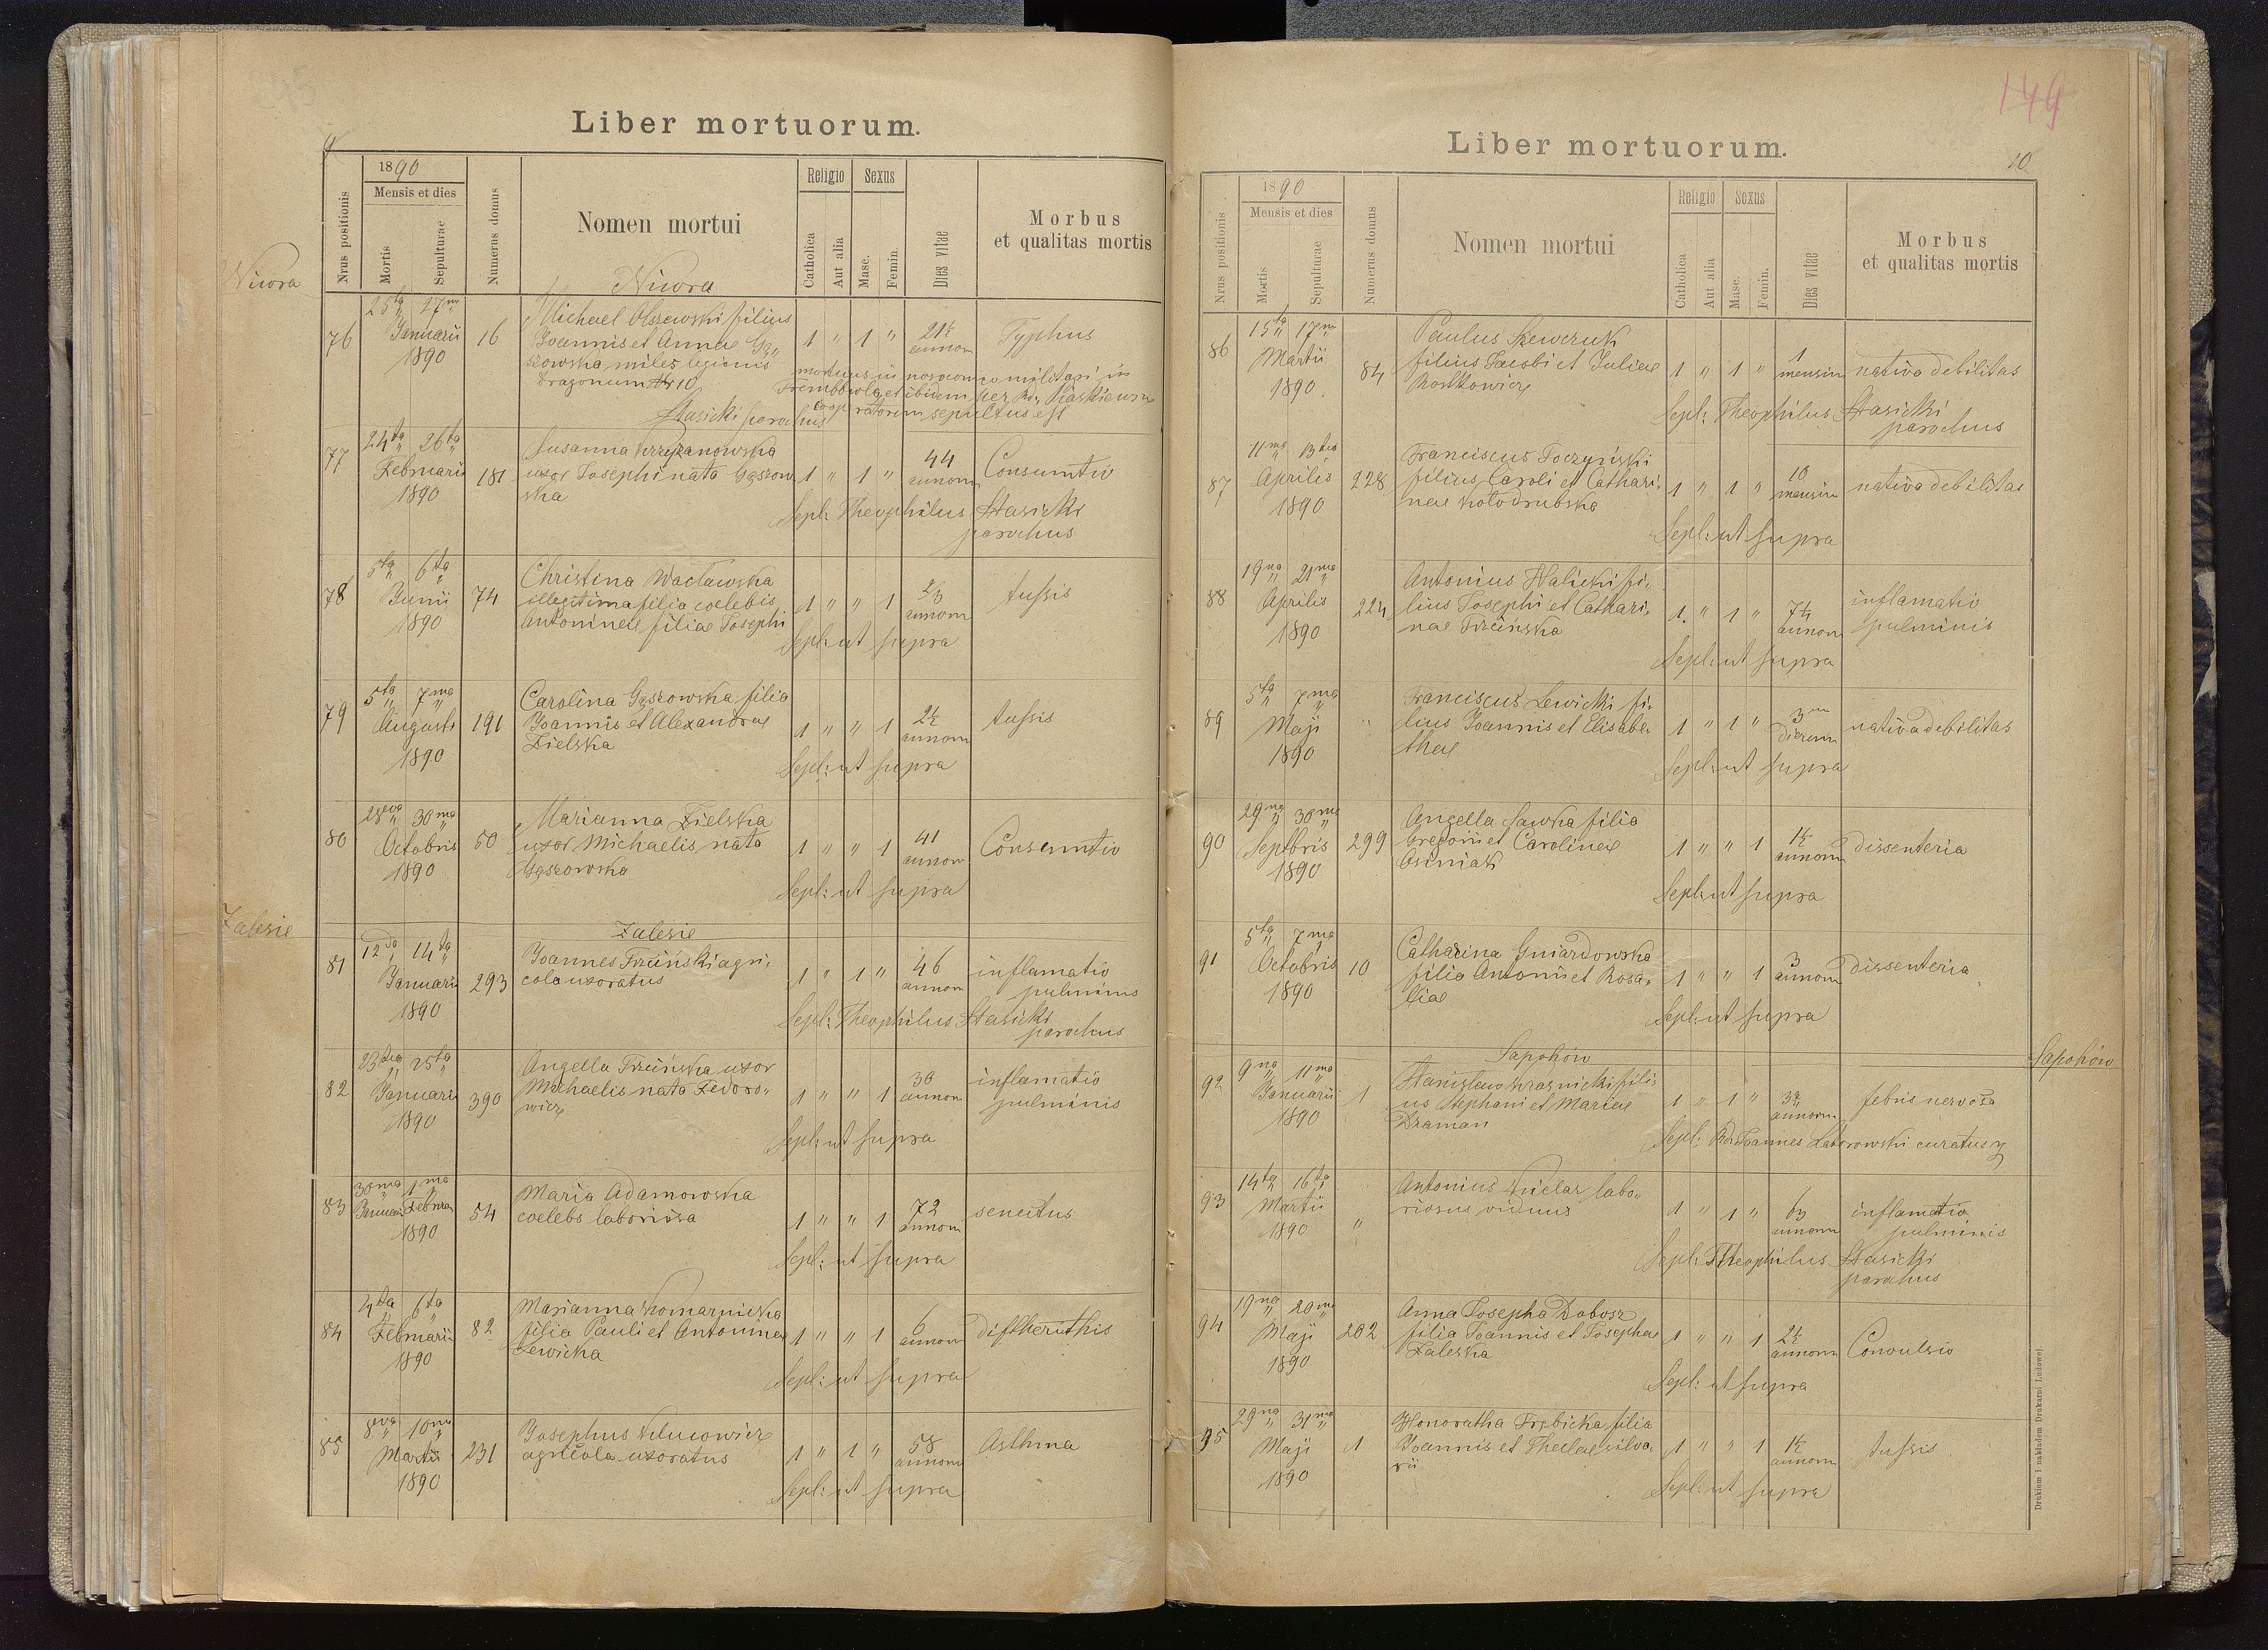 Liber mortuorum.
9
1890
Mensis et dies
Nrus positionis
Mortis
Sepulturae
Numerus domus
Nomen mortui
Religio
Sexus
Catholica
Aut alia
Masc.
Femin.
Dies vitae
Morbus
et qualitas mortis
Niwra
Niwra
76 25ta 27ma Januarii 1890 16
Michael Olszewski filius
Joannis et Annae Gą„
szowska miles legionis
Dragonum Nr 10
1 " 1 " 21½ annorum Typhus
mortuus in nosocomio militari in
Trembowla et ibidem per Rdm
cooperatorem sepultus est
Stasicki parochus
77 24ta 26ta Februarii 1890 181
Susanna Krzyżanowska
uxor Josephi nata Gąszow
ska
1 " 1 " 44 annorum Consumtio
Sepl: Theophilus Stasicki
parochus
78 5ta 6ta Junii 1890 74
Christina Wacławska
illegitima filia coelebis
Antoninae filiae Josephi
1 " " 1 annorum tussis
Sepl: ut supra
79 5ta 7ma Augusti 1890 191
Carolina Gąszowska filia
Joannis et Alexandrae
Zielska
1 " " 1 2½ annorum tussis
Sepl: ut supra
80 28va 30ma Octobris 1890 50
Marianna Zielska
uxor Michaelis nata
Gąszowska
1 " " 1 41 annorum Consumtio
Sepl: ut supra
Zalesie
Zalesie
81 12da 14ta Januarii 1890 293
Joannes Trziński agri„
cola uxoratus
1 " 1 " 46 annorum inflamatio
pulminis
Sepl: Theophilus Stasicki
parochus
82 23tia 25ta Januarii 1890 390
Angella Trzińska uxor
Michaelis nata Fedoro„
wicz
1 " " 1 30 annorum inflamatio
pulminis
Sepl: ut supra
83 30ma Januarii 1ma Februar 1890 54
Maria Adamowska
coelebs laboriosa
1 " " 1 72 annorum senectus
Sepl: ut supra
84 4ta 6ta Februarii 1890 82
Marianna Komarnicka
filia Pauli et Antoninae
Lewicka
1 " " 1 6 annorum diftheruthis
Sepl: ut supra
85 8va 10ma Martii 1890 231
Josephus
agricola uxoratus
1 " 1 " 58 annorum Asthma
Sepl: ut supra
149
Liber mortuorum.
10
1890
Mensis et dies
Nrus positionis
Mortis
Sepulturae
Numerus domus
Nomen mortui
Religio
Sexus
Catholica
Aut alia
Masc.
Femin.
Dies vitae
Morbus
et qualitas mortis
86 15ta 17ma Martii 1890 84
Paulus Szewczuk
filius Jacobi et Juliae
Roszkowicz
1 " 1 " 1 mensium nativa debilitas
Sepl: Theophilus Stasicki
parochus
87 11ma 13tia Aprilis 1890 228
Franciscus Toczyński
filius Caroli et Cathari„
nae Kołodrubska
1 " 1 " 10 mensium nativa debilitas
Sepl: ut supra
88 19na 21ma Aprilis 1890 224
Antonius Halicki fi„
lius Josephi et Cathari„
nae Trzińska
1 " 1 " 7¼ annorum inflamatio
pulminis
Sepl: ut supra
89 5ta 7ma Maji 1890 "
Franciscus Lewicki fi„
lius Joannis et Elisabe„
thae
1 " 1 " 3 dierum nativa debilitas
Sepl: ut supra
90 29na 30ma Septbris 1890 299
Angella Sawka filia
Gregorii et Carolinae
Osiniak
1 " " 1 1½ annorum dissenteria
Sepl: ut supra
91 5ta 7ma Octobris 1890 10
Catharina Gniazdowska
filia Antonii et Rosa„
liae
1 " " 1 3 annorum dissenteria
Sepl: ut supra
Sapohów
Sapohów
92 9na 11ma Januarii 1890 1
Stanislaw Krasnicki fili„
us Stephani et Mariae
Draman
1 " 1 " annorum febris nervosa
Sepl: Rd. Joannes curatus
93 14ta 16ta Martii 1890 "
Antonius labo„
riosus viduus
1 " 1 " 63 annorum inflamatio
pulminis
Sepl: Theophilus Stasicki
parohus
94 19na 20ma Maji 1890 202
Anna Josepha Dobosz
filia Joannis et Josepha
Zaleska
1 " " 1 2½ annorum Convulsio
Sepl: ut supra
95 29na 31ma Maji 1890 1
Honoratha Trębicka filia
Joannis et Theclae silva„
rii
1 " " 1 1½ annorum tussis
Sepl: ut supra
Drukiem i nakładem Drukarni Ludowej